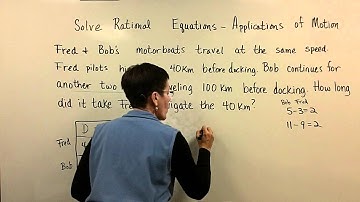 Solve Rational Equations - Applications of Motion
Fred & Bob's motorboats travel at the same speed.
Fred pilots 40 Km before docking. Bob continues for
another two traveling 100 Km before docking. How long
did it take navigate the 40 Km?
Bob Fred
5-3=2
11-9=2
D
Fred
Bob